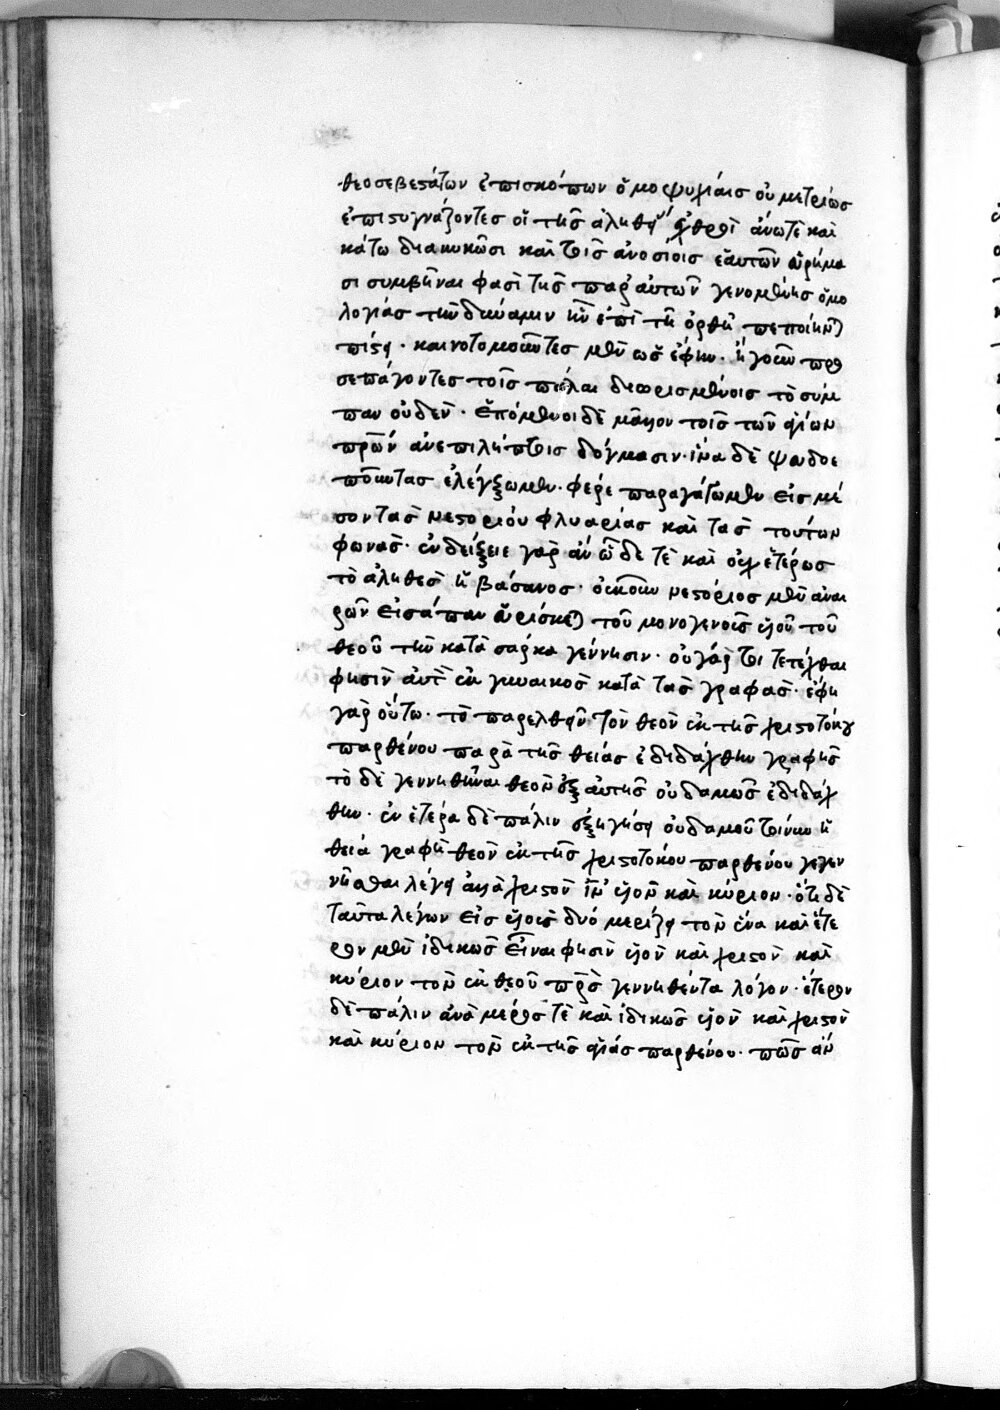 θεοσεβεστάτων ἐπισκόπων ὁμοψυχίαις οὐ μετρίως
ἐπιστυγνάζοντες οἱ τῆς ἀληθείας ἐχθροὶ ἄνωτε καὶ
κάτω διακυκῶσι καὶ τοῖς ἀνοσίοις ἑαυτῶν εὑρήμα
σι συμβῆναι φασὶ τῆς παρ' αὐτῶν γενομένης ὁμο
λογίας τὴν δύναμιν ἣν ἐπὶ τῇ ὀρθῇ πεποίηνται
πίστει· καινοτομοῦντες μὲν ὡς ἔφην· ἤγουν προ
σεπάγοντες τοῖς πάλαι διωρισμένοις τὸ σύμ
παν οὐδέν· ἑπόμενοι δὲ μᾶλλον τοῖς τῶν ἁγίων
πρῶν ἀνεπιλήπτοις δόγμασιν· ἵνα δὲ ψευδοε
ποῦντας ἐλέγξωμεν· φέρε παραγάγωμεν εἰς μέ
σον τὰς νεστορίου φλυαρίας καὶ τὰς τούτων
φωνάς· ἐνδείξειε γὰρ ἂν ὧδε τὲ καὶ οὐχ ἑτέρως
τὸ ἀληθὲς ἡ βάσανος· οὐκοῦν νεστόριος μὲν ἀναι
ρῶν εἰσάπαν εὑρίσκεται τοῦ μονογενοῦς υἱοῦ τοῦ
θεοῦ τὴν κατὰ σάρκα γέννησιν· οὐ γάρ τοι τετέχθαι
φησὶν αὐτὸν ἐκ γυναικὸς κατὰ τὰς γραφάς· ἔφη
γὰρ οὕτω· τὸ παρελθεῖν τὸν θεὸν ἐκ τῆς χριστοτόκου
παρθένου παρὰ τῆς θείας ἐδιδάχθην γραφῆς
τὸ δὲ γεννηθῆναι θεὸν ἐξ αὐτῆς οὐδαμῶς ἐδιδάχ
θην· ἐν ἑτέρα δὲ πάλιν ἐξηγήσει οὐδαμοῦ τοίνυν ἡ
θεία γραφὴ θεὸν ἐκ τῆς χριστοτόκου παρθένου γεγεν
νῆσθαι λέγει ἀλλὰ χριστὸν ἰν υἱὸν καὶ κύριον· ὅτι δὲ
ταῦτα λέγων εἰς υἱοὺς δύο μερίζει τὸν ἕνα καὶ ἕτε
ρον μὲν ἰδικῶς εἶναι φησὶν υἱὸν καὶ χριστὸν καὶ
κύριον τὸν ἐκ θεοῦ πρς γεννηθέντα λόγον· ἕτερον
δὲ πάλιν ἀνὰ μέρος τὲ καὶ ἰδικῶς υἱὸν καὶ χριστὸν
καὶ κύριον τὸν ἐκ τῆς ἁγίας παρθένου· πῶς ἂν